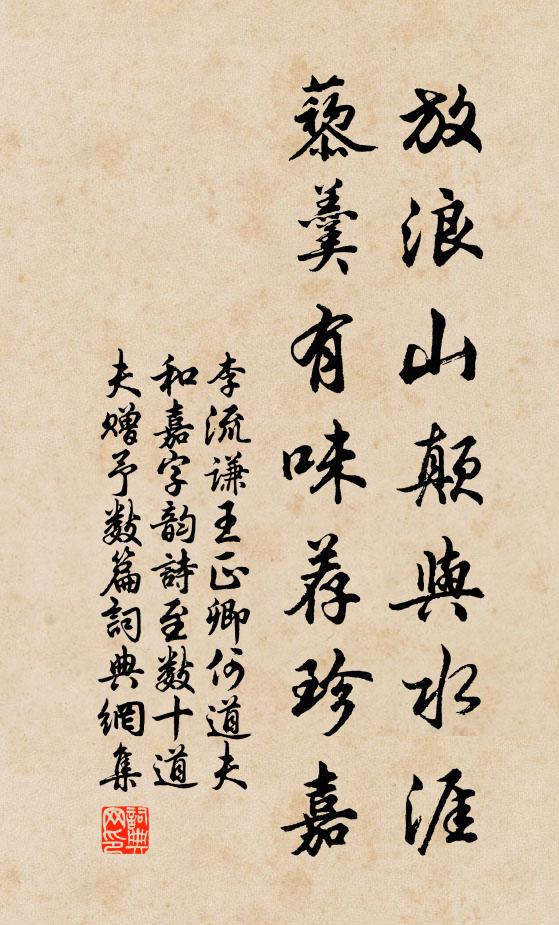 放浪山颠與水涯
藜羹有味荐珍嘉
李流謙王正卿何道夫
和嘉字韵詩至数十道
夫赠予数篇詞典網集
詞典网印